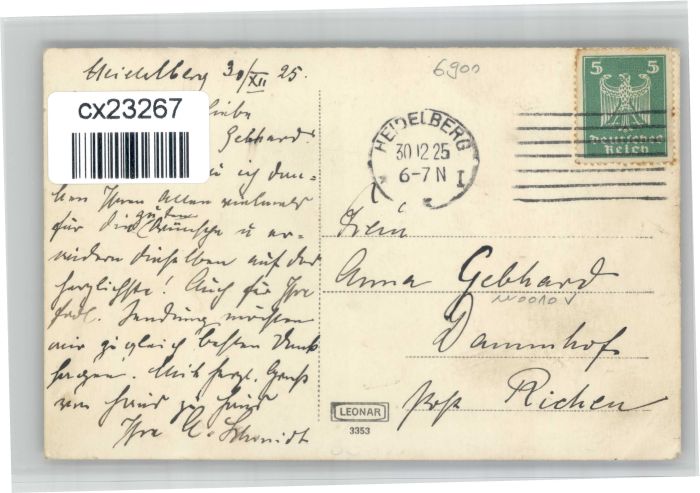 Heidelberg 30/XII 25.
6900
cx23267
Liebe
Gebhard!
u ich dan-
ken Ihnen Allen vielmals
für die guten Wünsche u er-
widern dieselben auf das
herzlichste! Auch für Ihre
frdl. Sendung möchten
wir zugleich besten Dank
sagen. Mit herzl. Gruß
von Haus zu Haus
Ihre Schmidt
HEIDELBERG
30 12 25
6-7 N
I
5 5
Deutsches
Reich
Anna Gebhard
Dammhof
Post Richen
LEONAR
3353